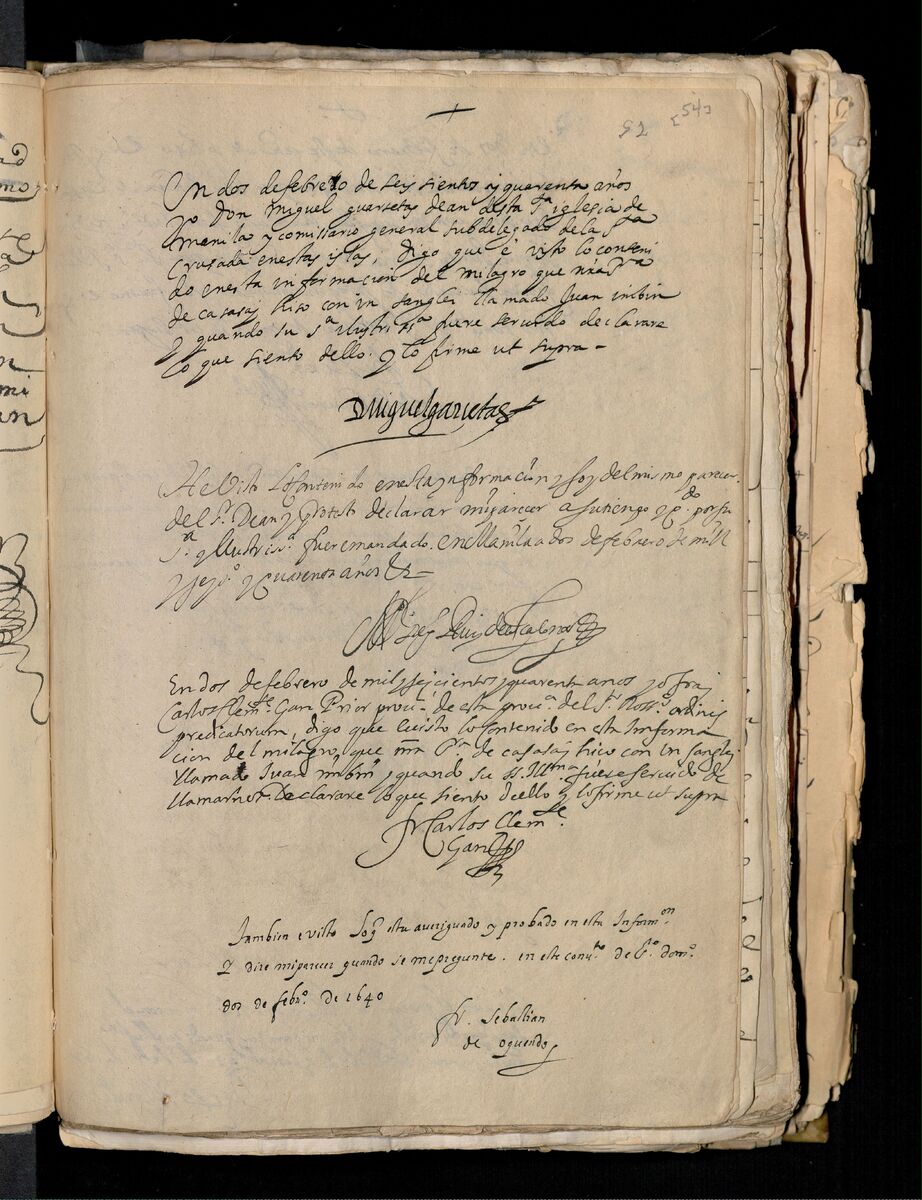 +
52 [54]
En dos de febrero de seis sientos y quarenta años
Yo Don miguel guarsetas dean desta sᵗᵃ iglesia de
manila y comissario general subdelegado de la Sᵗᵃ
Crusada en estas yslas, digo que é visto lo conteni
do en esta informacion del milagro que nrã Sʳᵃ
de casasaj hiso con vn sanglei llamado Juan imbin
y quando su Sᵃ illustrisᵃ fuere seruido declarare
lo que siento dello. y lo firme ut supra —
D Miguel garsetas
He visto lo contenido en esta ynformación y soy del mismo parecer
del Sʳ. Dean y protesto declarar mi parecer a su tiempo y qᵈᵒ por su
Sᵃ yllustrisᵃ. fuere mandado. en Manila a dos de febrero de mill
y seysᵒ. y quarenta años &ᵃ —
En dos de febrero de mil y seiscientos y quarenta años yo fraj
Carlos Clemᵗᵉ Gan Prior procuʳ. de esta prouᵃ. del Sʳ. Rossʳᵒ. ordinis
predicatorum, digo que e uisto lo contenido en esta Informa
cion del milagro, que nrã Sʳᵃ. de casasaj hico con vn sanglej
llamado Juan imbin, y quando su S. Illᵐᵃ fuere seruido de
llamarnos Declarare lo que siento de ello y lo firme ut supra
fr Carlos Clemᵗᵉ.
Gan
Tambien e visto lo q̃ esta aueriguado y probado en esta Informᵒⁿ.
y dire mi parecer quando se me pregunte. en este conuᵗᵒ de Sᵗᵒ. domᵒ.
dos de febʳᵒ. de 1640
fr. sebastian
de oquendo